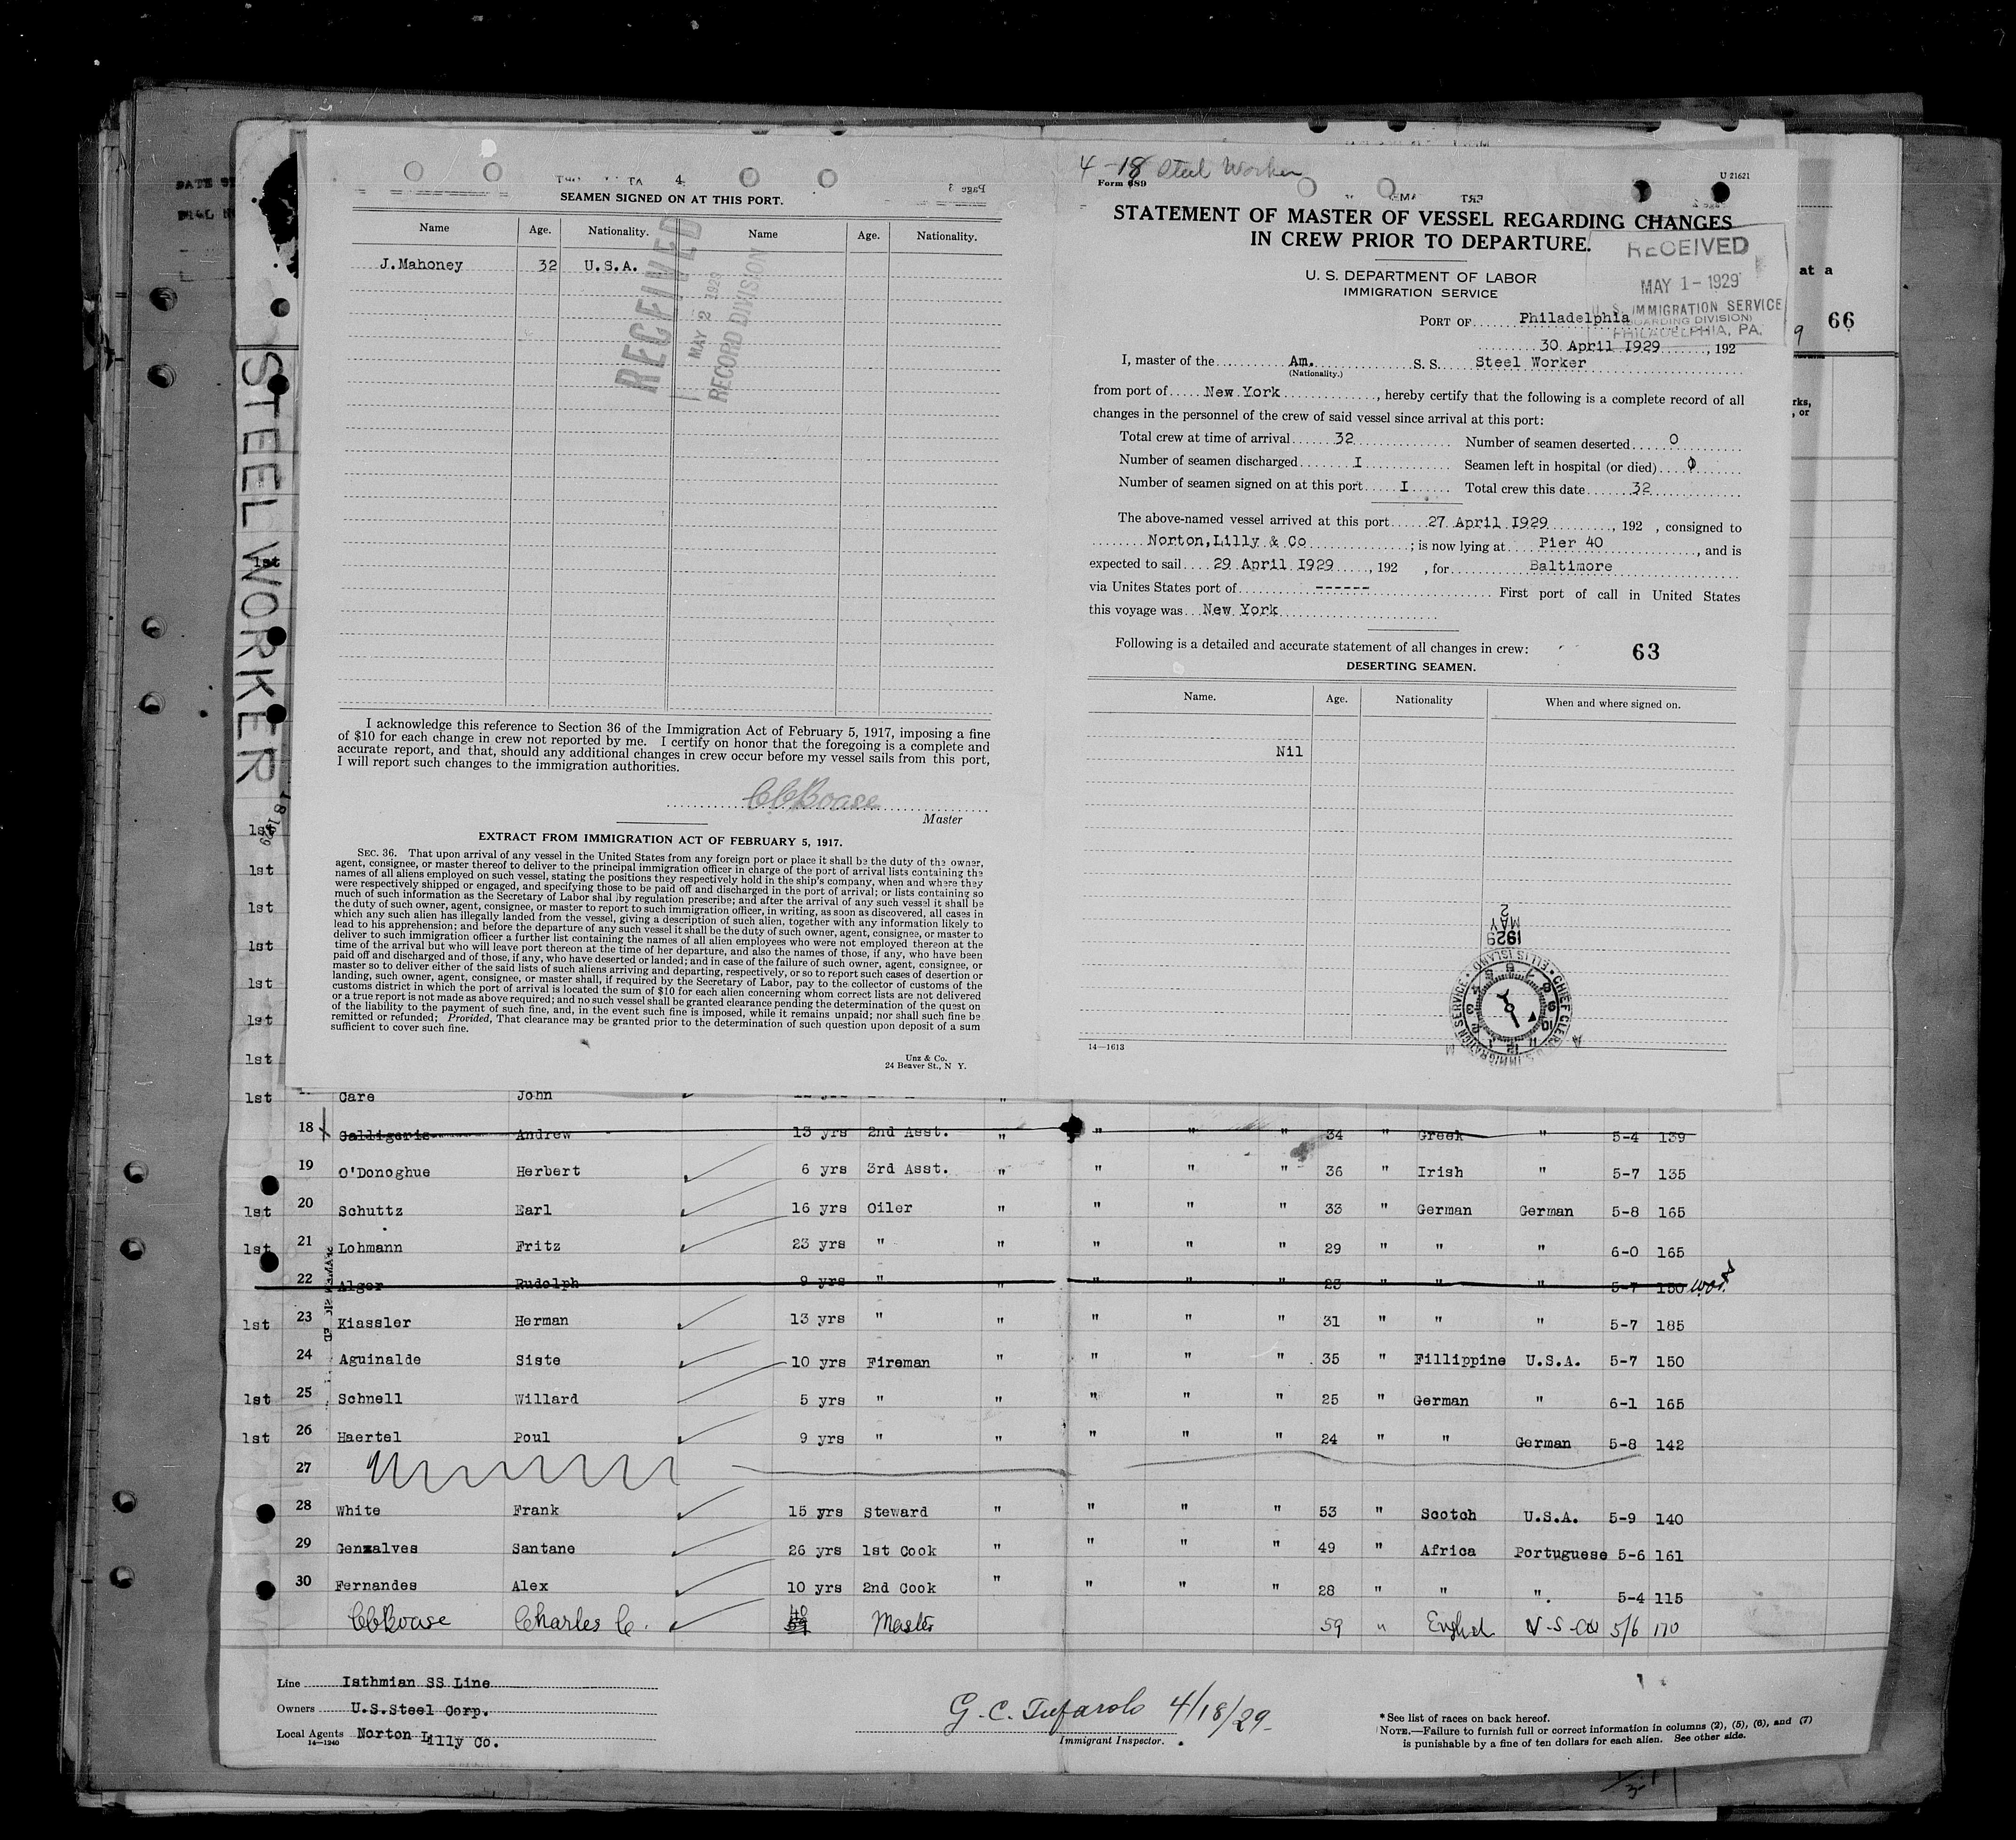 SEAMEN SIGNED ON AT THIS PORT.
Name Age. Nationality. Name Age. Nationality.
J.Mahoney 32 U.S.A.
RECEIVED
MAY 2 1929
RECORD DIVISION
I acknowledge this reference to Section 36 of the Immigration Act of February 5, 1917, imposing a fine
of $10 for each change in crew not reported by me. I certify on honor that the foregoing is a complete and
accurate report, and that, should any additional changes in crew occur before my vessel sails from this port,
I will report such changes to the immigration authorities.
CCBoase
Master
EXTRACT FROM IMMIGRATION ACT OF FEBRUARY 5, 1917.
SEC. 36. That upon arrival of any vessel in the United States from any foreign port or place it shall be the duty of the owner,
agent, consignee, or master thereof to deliver to the principal immigration officer in charge of the port of arrival lists containing the
names of all aliens employed on such vessel, stating the positions they respectively hold in the ship's company, when and where they
were respectively shipped or engaged, and specifying those to be paid off and discharged in the port of arrival; or lists containing so
much of such information as the Secretary of Labor shal lby regulation prescribe; and after the arrival of any such vessel it shall be
the duty of such owner, agent, consignee, or master to report to such immigration officer, in writing, as soon as discovered, all cases in
which any such alien has illegally landed from the vessel, giving a description of such alien, together with any information likely to
lead to his apprehension; and before the departure of any such vessel it shall be the duty of such owner, agent, consignee, or master to
deliver to such immigration officer a further list containing the names of all alien employees who were not employed thereon at the
time of the arrival but who will leave port thereon at the time of her departure, and also the names of those, if any, who have been
paid off and discharged and of those, if any, who have deserted or landed; and in case of the failure of such owner, agent, consignee, or
master so to deliver either of the said lists of such aliens arriving and departing, respectively, or so to report such cases of desertion or
landing, such owner, agent, consignee, or master shall, if required by the Secretary of Labor, pay to the collector of customs of the
customs district in which the port of arrival is located the sum of $10 for each alien concerning whom correct lists are not delivered
or a true report is not made as above required; and no such vessel shall be granted clearance pending the determination of the quest on
of the liability to the payment of such fine, and, in the event such fine is imposed, while it remains unpaid; nor shall such fine be
remitted or refunded; Provided, That clearance may be granted prior to the determination of such question upon deposit of a sum
sufficient to cover such fine.
Unz & Co.
24 Beaver St., N Y.
4-18 Steel Worker
Form 689
U 21621
STATEMENT OF MASTER OF VESSEL REGARDING CHANGES
IN CREW PRIOR TO DEPARTURE.
U. S. DEPARTMENT OF LABOR
IMMIGRATION SERVICE
RECEIVED
MAY 1-1929
U.S. IMMIGRATION SERVICE
PHILADELPHIA, PA.
PORT OF Philadelphia
30 April I929, 192
I, master of the Am. S. S. Steel Worker
(Nationality.)
from port of New York, hereby certify that the following is a complete record of all
changes in the personnel of the crew of said vessel since arrival at this port:
Total crew at time of arrival 32 Number of seamen deserted 0
Number of seamen discharged I Seamen left in hospital (or died) 0
Number of seamen signed on at this port I Total crew this date 32
The above-named vessel arrived at this port 27 April I929, 192 , consigned to
Norton,Lilly & Co; is now lying at Pier 40, and is
expected to sail 29 April I929, 192 , for Baltimore
via Unites States port of ------ First port of call in United States
this voyage was New York
Following is a detailed and accurate statement of all changes in crew: 63
DESERTING SEAMEN.
Name. Age. Nationality When and where signed on.
Nil
MAY 2 1929
CHIEF CLERK U.S. IMMIGRATION SERVICE ELLIS ISLAND
14—1613
at a
66
rks,
, or
STEEL WORKER
1st
1st
1st
1st
1st
1st
1st
1st
1st Care John
18 Calligeris Andrew 13 yrs 2nd Asst. " " " " 34 " Greek " 5-4 139
19 O'Donoghue Herbert 6 yrs 3rd Asst. " " " " 36 " Irish " 5-7 135
1st 20 Schuttz Earl 16 yrs Oiler " " " " 33 " German German 5-8 165
1st 21 Lohmann Fritz 23 yrs " " " " " 29 " " " 6-0 165
22 Alger Rudolph 9 yrs " " " " " 23 " " " 5-7 150
1st 23 Kiassler Herman 13 yrs " " " " " 31 " " " 5-7 185
24 Aguinalde Siste 10 yrs Fireman " " " " 35 " Fillippine U.S.A. 5-7 150
1st 25 Schnell Willard 5 yrs " " " " " 25 " German " 6-1 165
1st 26 Haertel Poul 9 yrs " " " " " 24 " " German 5-8 142
27
28 White Frank 15 yrs Steward " " " " 53 " Scotch U.S.A. 5-9 140
29 Genzalves Santane 26 yrs 1st Cook " " " " 49 " Africa Portuguese 5-6 161
30 Fernandes Alex 10 yrs 2nd Cook " " " " 28 " " " 5-4 115
CCBoase Charles C. Master 59 " English U-S-A 5/6 170
Line Isthmian SS Line
Owners U.S.Steel Corp.
Local Agents Norton Lilly Co.
14—1240
G. C. Tufarolo 4/18/29
Immigrant Inspector.
*See list of races on back hereof.
NOTE.—Failure to furnish full or correct information in columns (2), (5), (6), and (7)
is punishable by a fine of ten dollars for each alien. See other side.